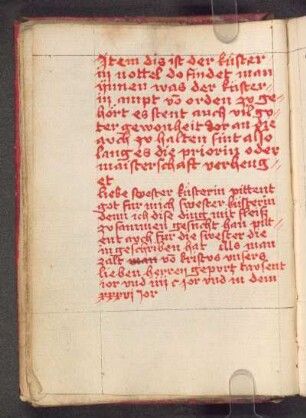 Jtem dis ist der küster
in nottel do findet man
ynnen was der küster-
in ampt vō orden zů ge-
hört es stent auch vil gů-
ter gewonheit dor an die
auch zů halten sint also
lang es die priorin oder
maisterschaft verheng-
et
liebe swester küsterin pittent
got für mich swester küsterin
denn ich dise ding mit fleiß
zů samen gesücht han pitt-
ent auch für die swester die
in geschriben hat Als man
zalt man vō kristus vnsers
lieben herren gepurt tausent
ior vnd iiii c ior vnd in dem
xxxvi Jor